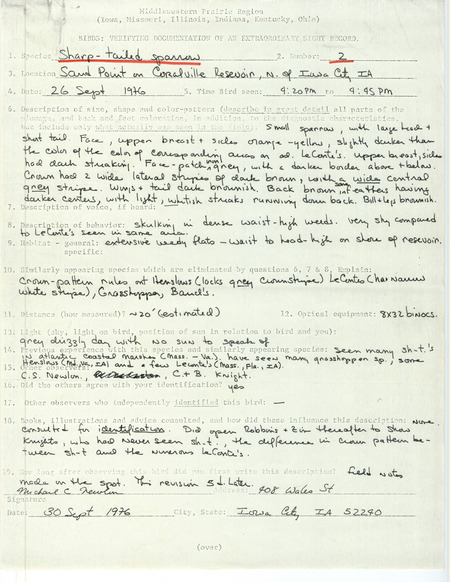 Middlewestern Prairie Region
(Iowa, Missouri, Illinois, Indiana, Kentucky, Ohio)
BIRDS: VERIFYING DOCUMENTATION OF AN EXTRAORDINARY SIGHT RECORD.
1. Species: Sharp-tailed sparrow 2. Number: 2
3. Location: Sand Point on Coralville Resevoir, N. of Iowa City, IA
4. Date: 26 Sept 1976 5. Time Bird seen: 4:20 PM to 4:45 PM
6. Description of size, shape and color-pattern (describe in great detail all parts of the
plumage, and beak and foot coloration, in addition to the diagnostic characteristics,
but include only what actually was seen in the field): Small sparrow, with large head +
short tail. Face, upper breast + sides orange-yellow, slightly darker than
the color of the color of corresponding areas on ad. LeConte's. Upper breast, sides
had dark streaking. Face-patch grey, with a darker border above + below.
Crown had 2 wide lateral stripes of dark brown, with a wide central
grey stripe. Wings + tail dark brownish. Back brown, feathers having
darker centers, with light, whitish streaks running down back. Bill + legs brownish.
7. Description of voice, if heard:
8. Description of behavior: skulking in dense waist-high weeds. very shy compared
to LeConte's seen in same area.
9. Habitat - general: extensive weedy flats - waist to head-high on shore of resevoir.
specific:
10. Similarly appearing species which are eliminated by questions 6, 7 & 8, Explain:
Crown-pattern rules out Henslows (lacks grey crownstripe) LeContes (has narrow
white stripe), Grasshopper, Baird's.
11. Distance (how measured)? ~20' (estimated) 12. Optical equipment: 8x32 binocs.
13. Light (sky, light on bird, position of sun in relation to bird and you):
grey drizzly day with no sun to speak of
14. Previous experience with this species and similarly appearing species: seen many sh-t.'s
in atlantic coastal marshes (Mass. - Va.). have seen many grasshopper sp., some
Henslows (Md, Va, IA) and a few LeConte's (Mass., Fla., IA).
15. Other observers:
C.S. Newlon, C. + B. Knight.
16. Did the others agree with your identification? yes
17. Other observers who independently identified this bird: —
18. Books, illustrations and advice consulted, and how did these influence this description: none
consulted for identification. Did open Robbins + Zim thereafter to show
Knights, who had never seen sh-t., the difference in crown pattern be-
tween sh-t and the numerous LeConte's.
19. How long after observing this bird did you first write this description? field notes
made on the spot. This revision 5 d. later.
Michael C Newlon Address: 408 Wales St
Signature
Date: 30 Sept 1976 City, State: Iowa City, IA 52240
(over)